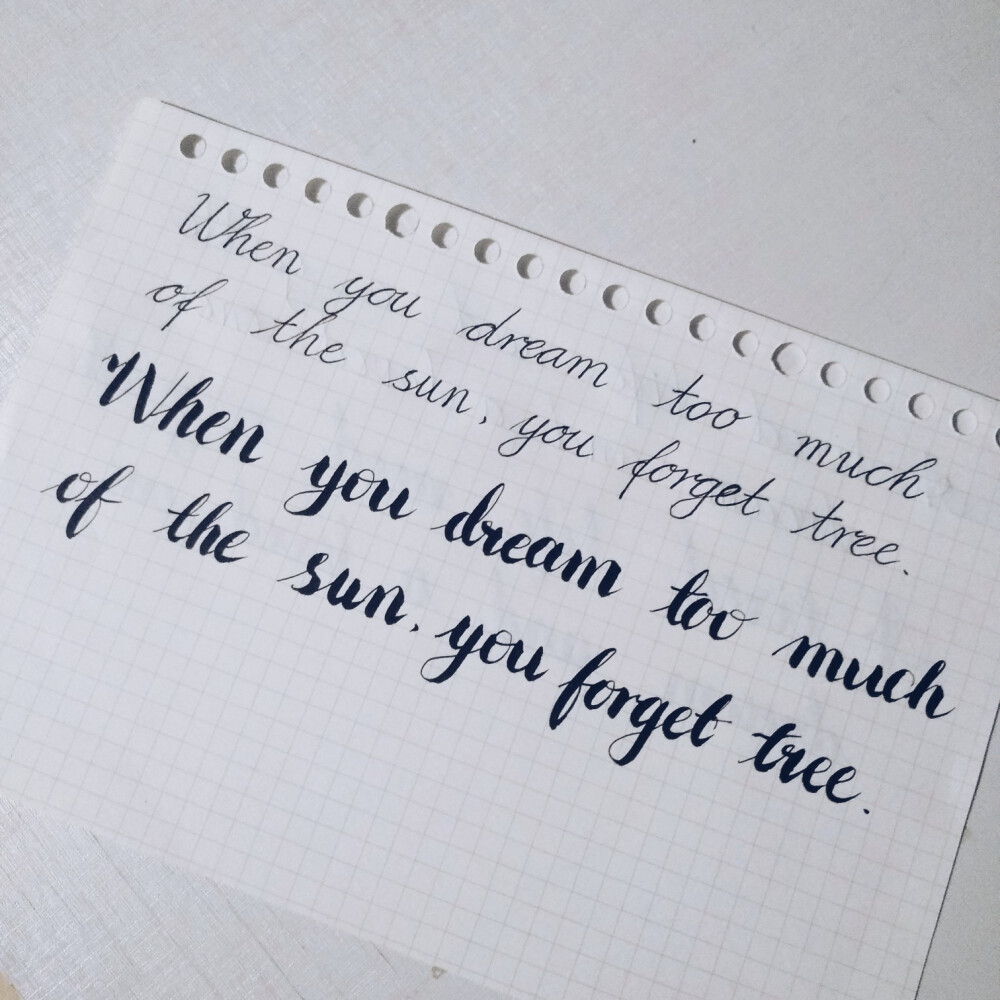 When you dream too much
of the sun, you forget tree.
When you dream too much
of the sun, you forget tree.